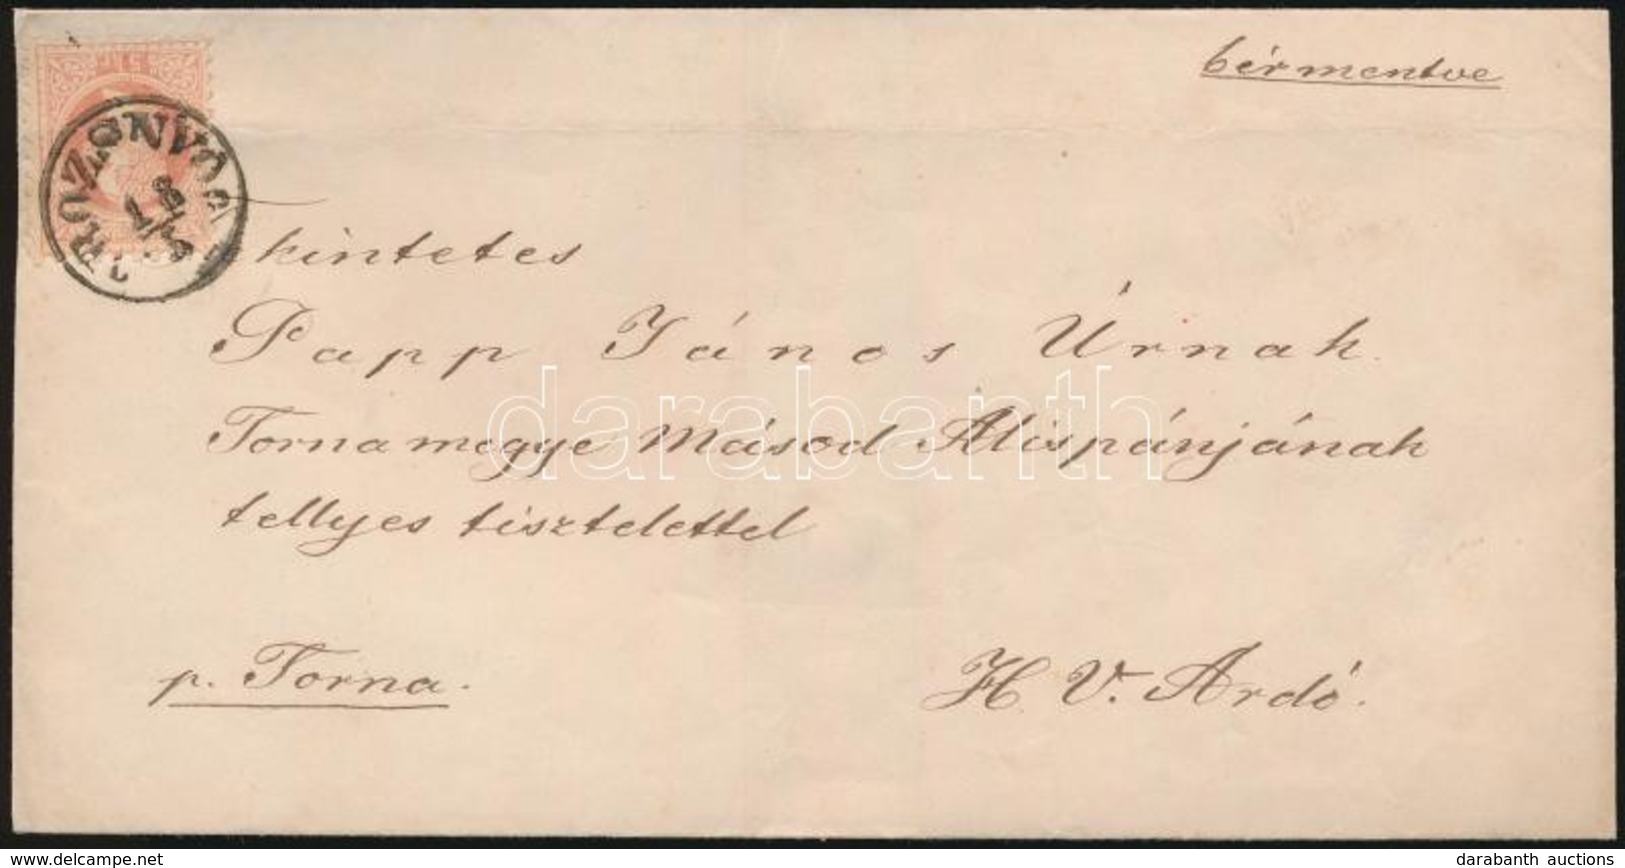 bérmentve
ROZSNYÓ
18/5
Tkintetes
Papp János Úrnak
Tornamegye Másod Alispánjának
tellyes tisztelettel
p. Torna.
H. V. Ardó.
darabanth
delcampe.net
darabanth auctions